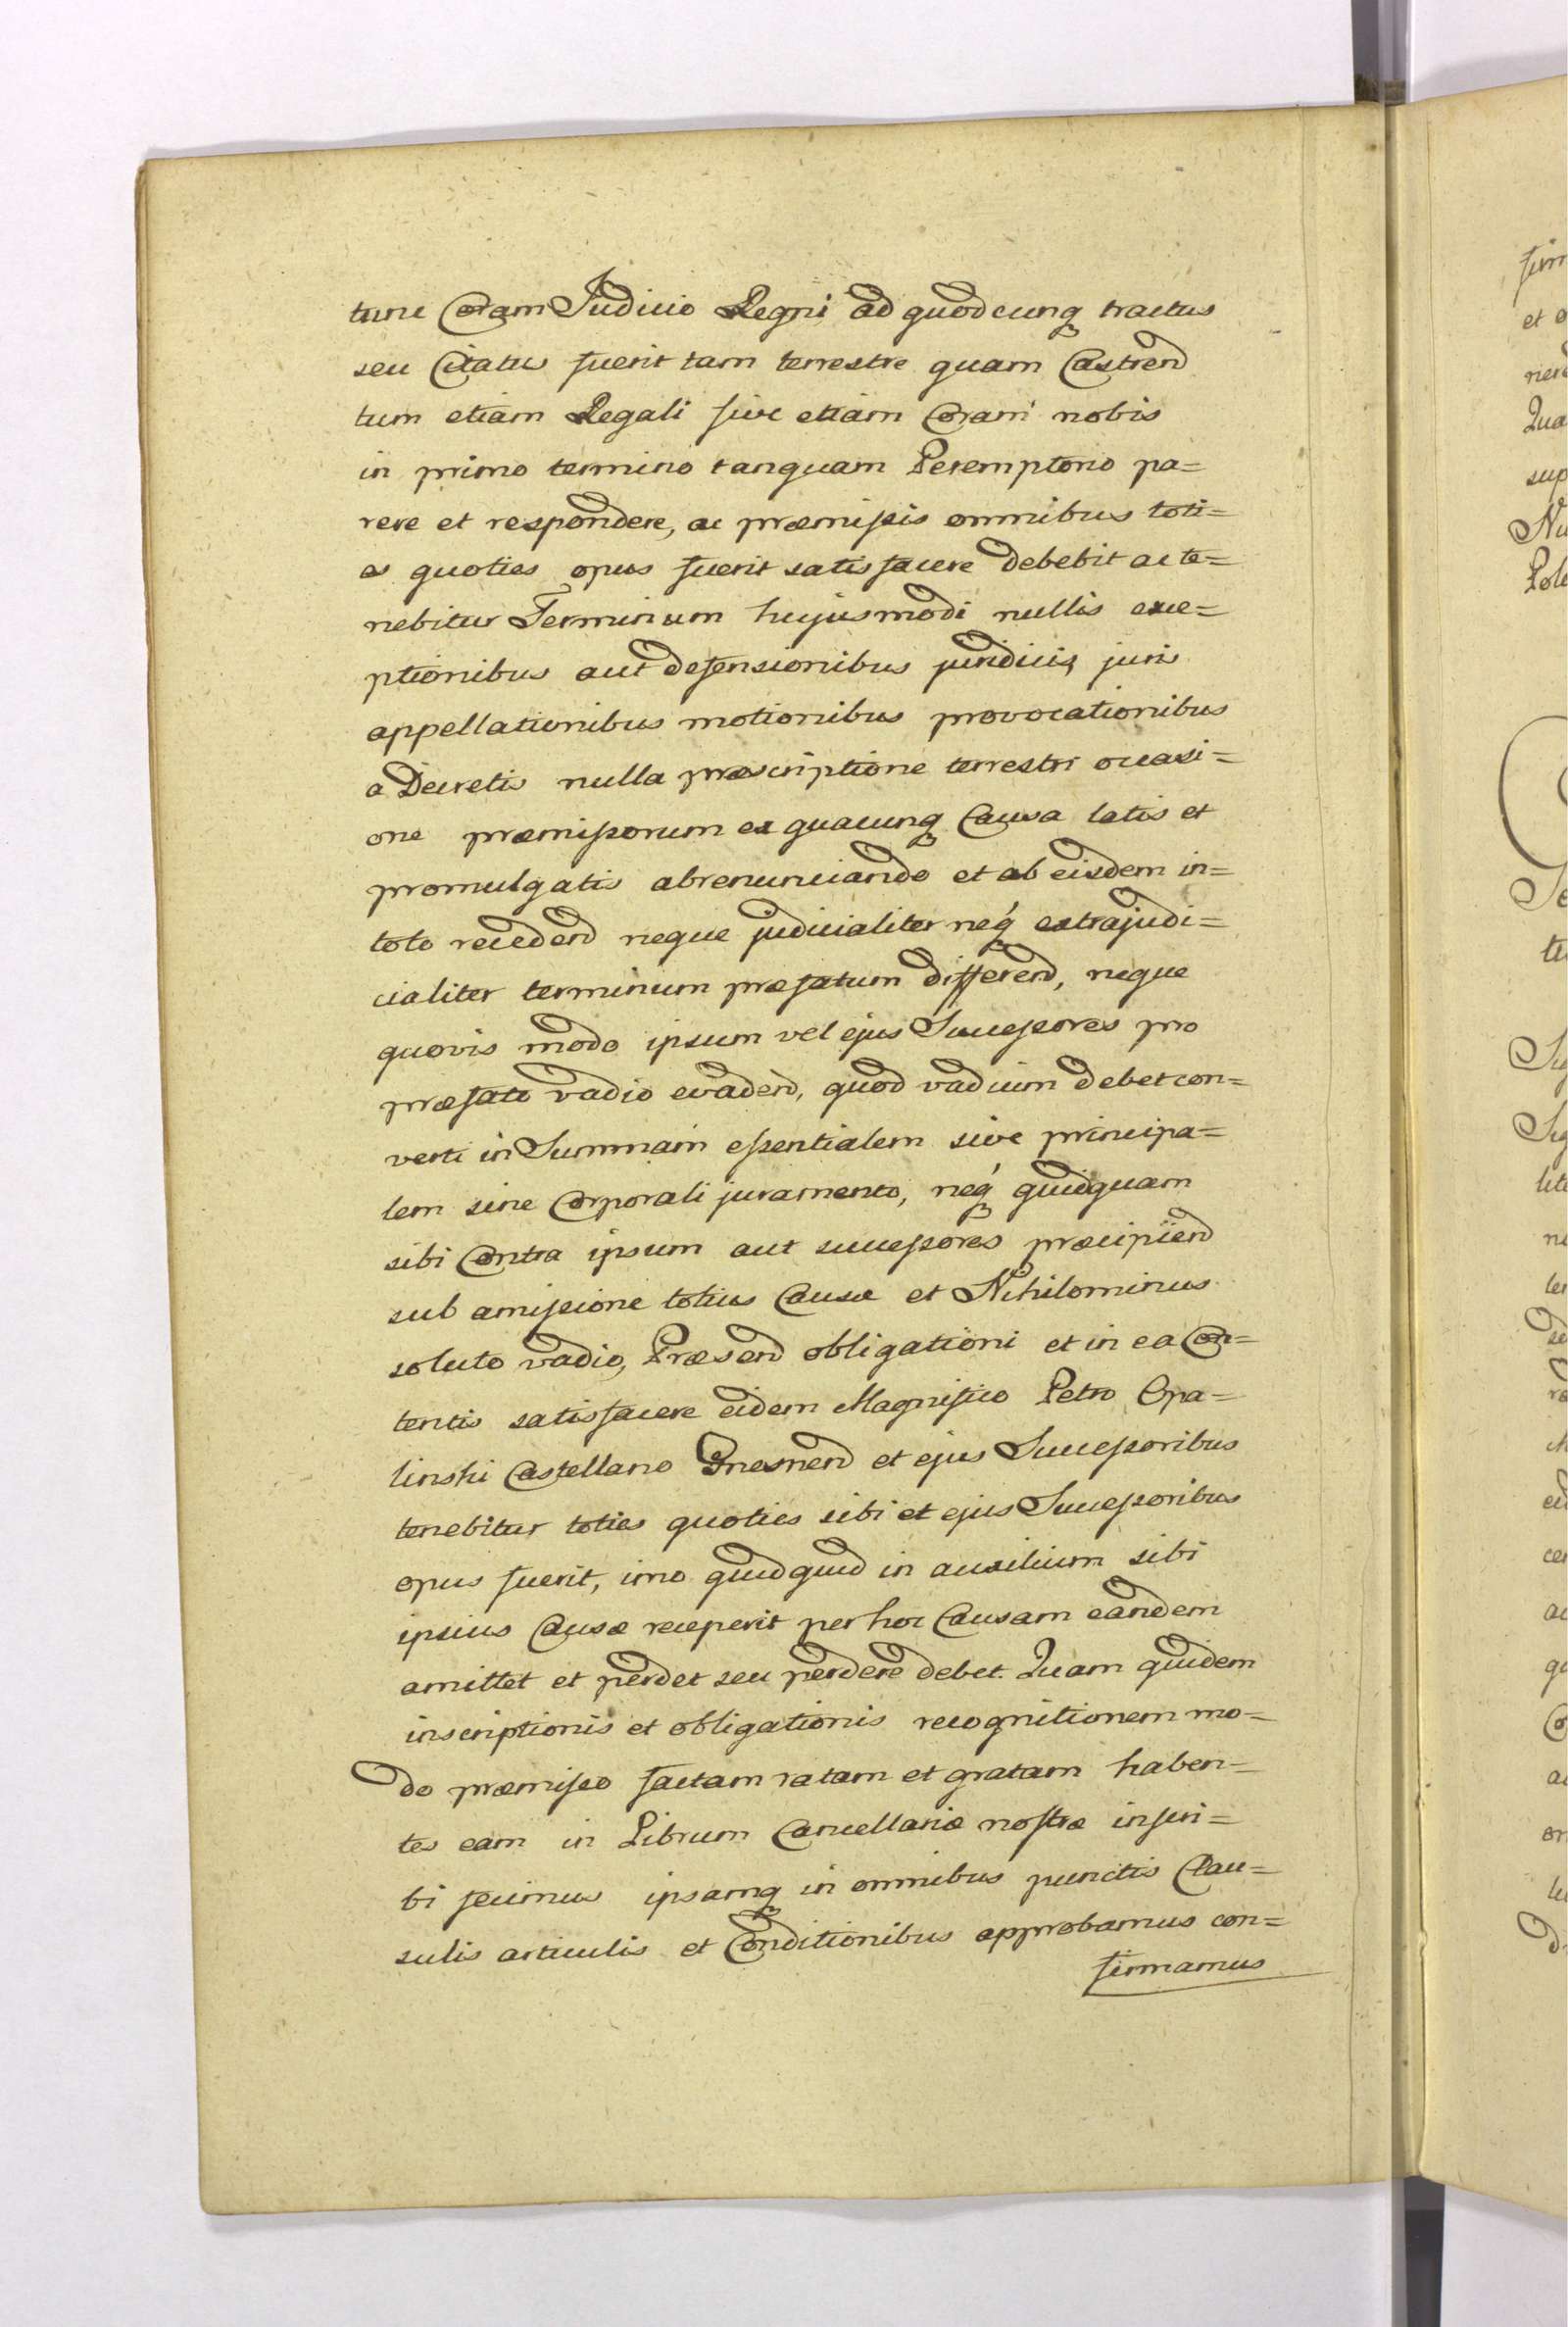 tunc Coram Judicio Regni ad quodcunq tractus
seu Citatus fuerit tam terrestre quam Castrend
tum etiam Regali sive etiam Coram nobis
in primo termino tanquam Peremptorio pa=
rere et respondere, ac præmissis omnibus toti=
es quoties opus fuerit satisfacere debebit ac te=
nebitur Terminum hujusmodi nullis exce=
ptionibus aut defensionibus juridicis juris
appellationibus motionibus provocationibus
a Decretis nulla præscriptione terrestri occasi=
one præmissorum ex quacunq Causa latis et
promulgatis abrenunciando et ab eisdem in=
toto recedend neque judicialiter neq extrajudi=
cialiter terminum præfatum differend, neque
quovis modo ipsum vel ejus Successores pro
præfato vadio evadend, quod vadium debet con=
verti in Summam essentialem sive principa=
lem sine Corporali juramento, neq quidquam
sibi Contra ipsum aut successores præcipiend
sub amissione totius Causæ et Nihilominus
soluto vadio, Præsend obligationi et in ea Con=
tentis satisfacere eidem Magnifico Petro Opa=
linski Castellano Gnesnend et ejus Successoribus
tenebitur toties quoties sibi et ejus Successoribus
opus fuerit, imo quidquid in auxilium sibi
ipsius Causæ receperit per hoc Causam eandem
amittet et perdet seu perdere debet. Quam quidem
inscriptionis et obligationis recognitionem mo=
do præmisso factam ratam et gratam haben=
tes eam in Librum Cancellariæ nostræ inscri=
bi fecimus ipsamq in omnibus punctis Clau=
sulis articulis et Conditionibus approbamus con=
firmamus